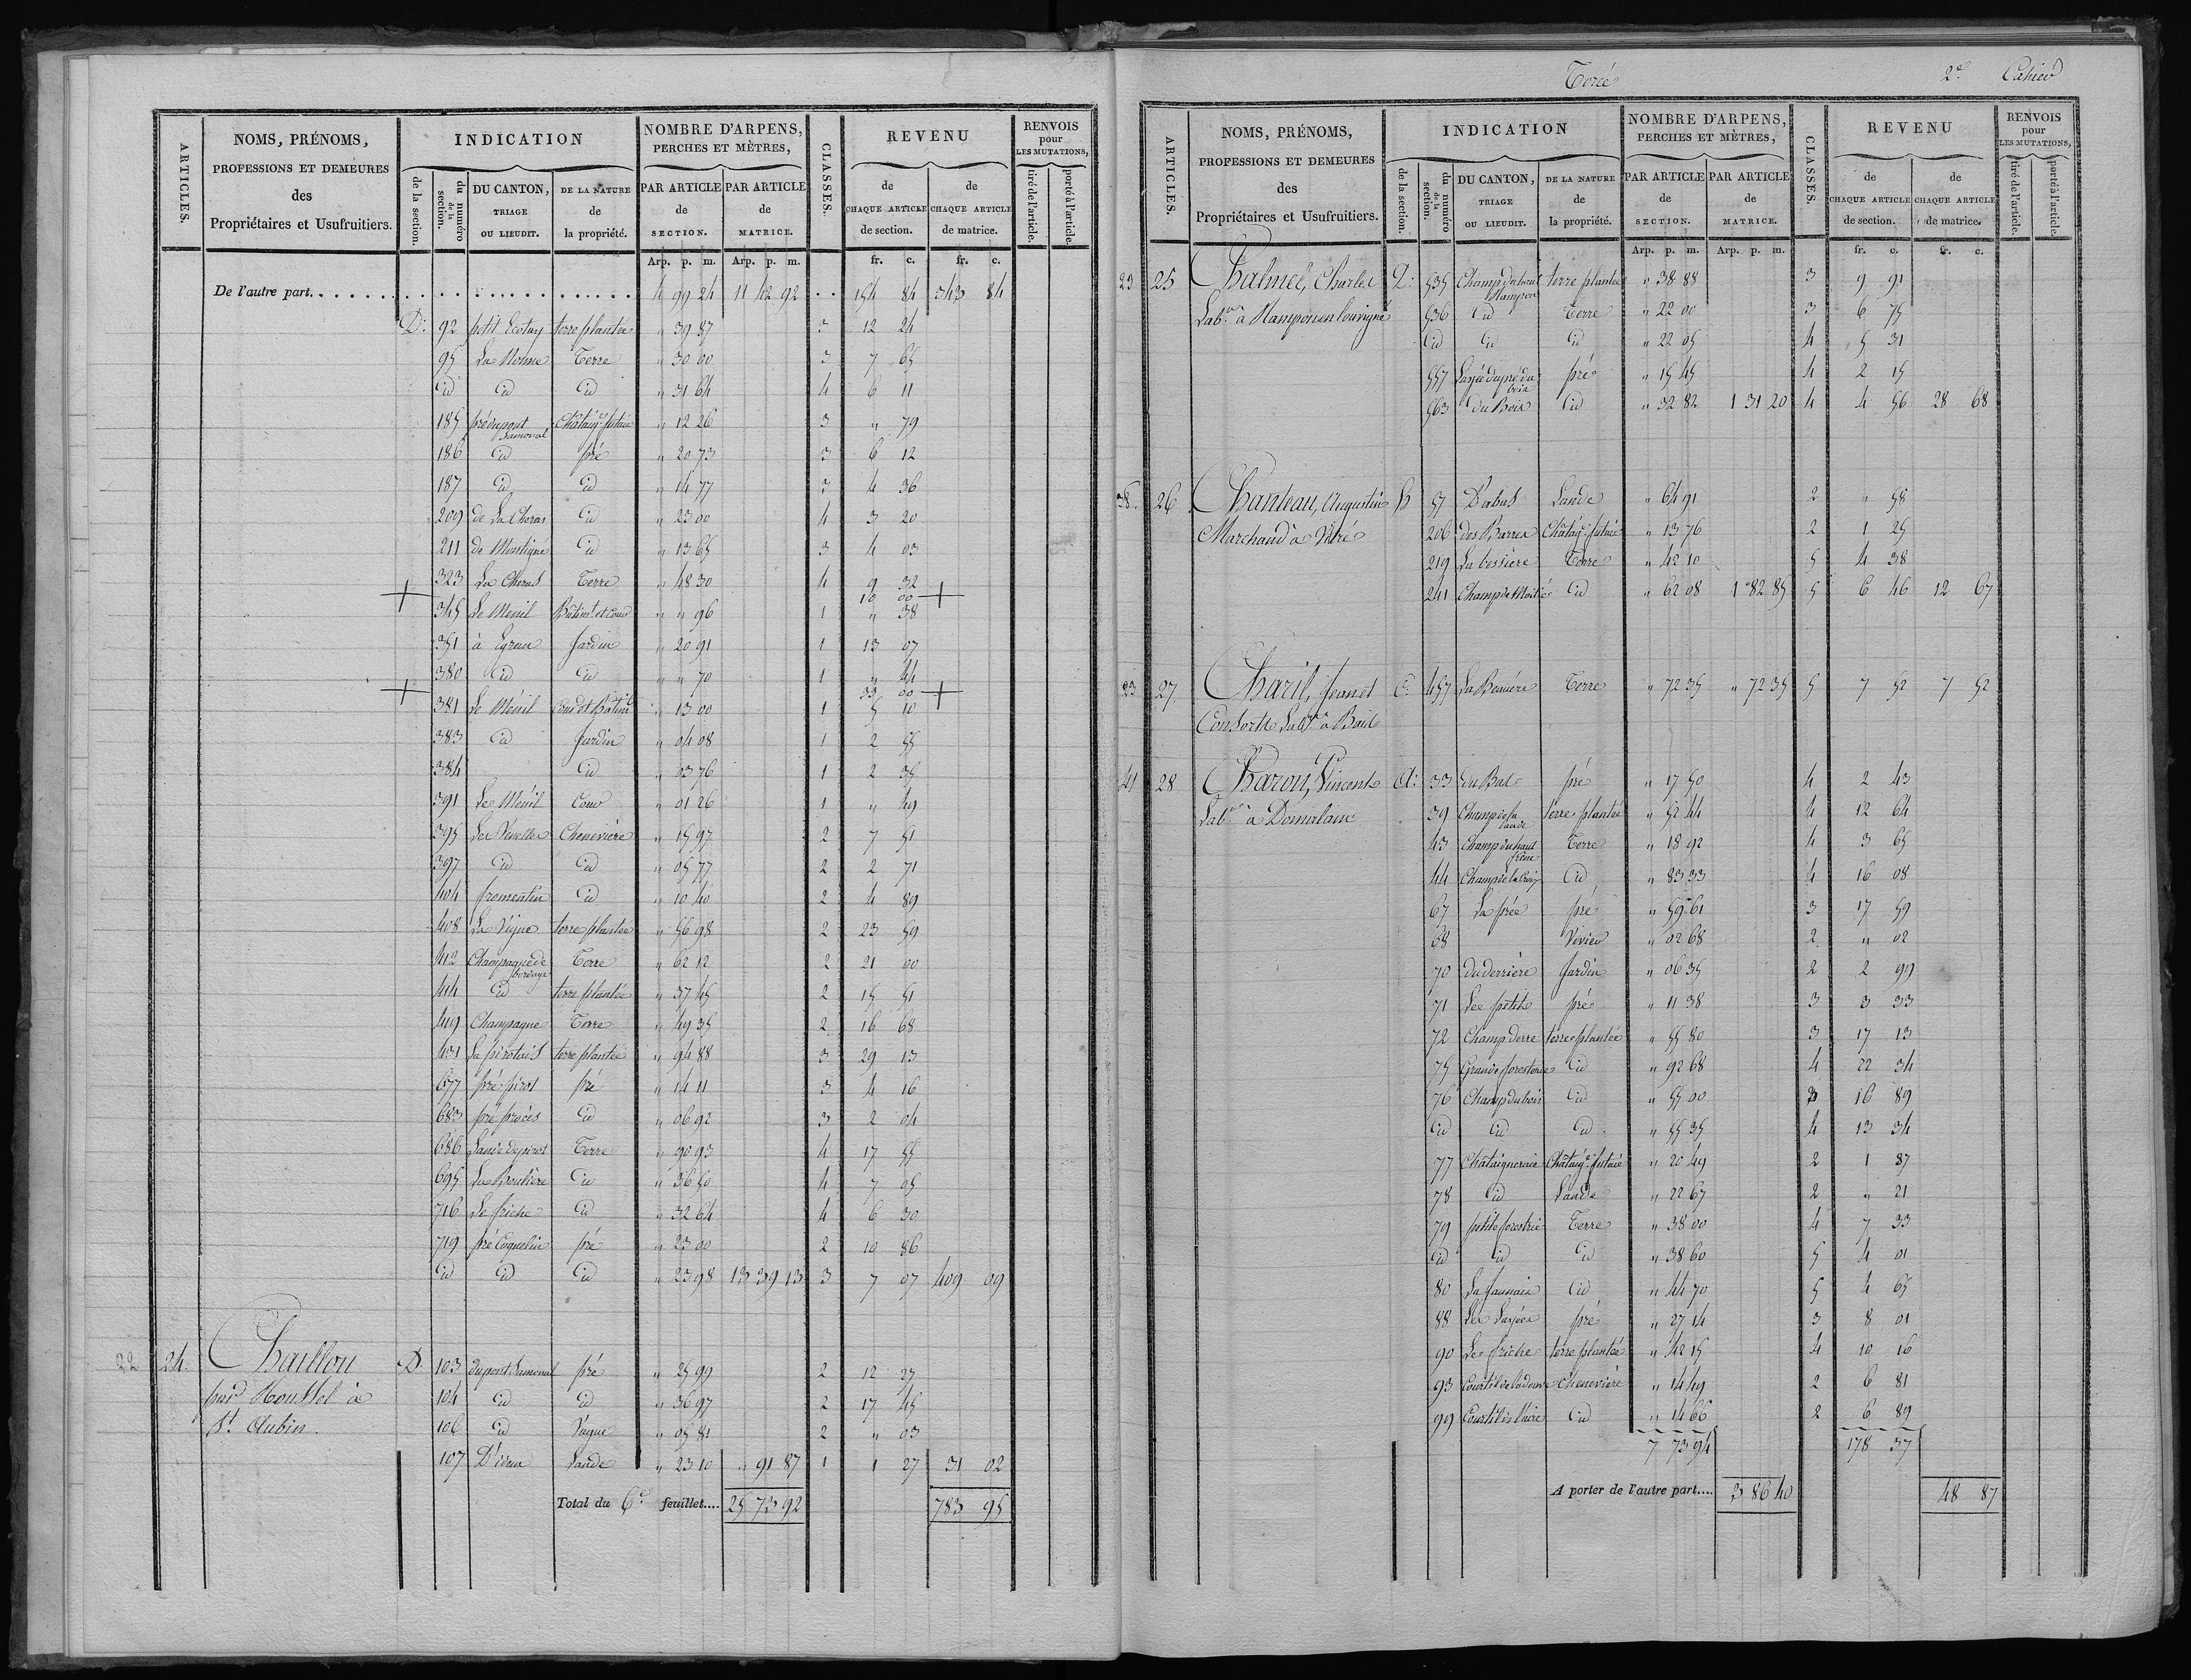 ARTICLES.
NOMS, PRÉNOMS,
PROFESSIONS ET DEMEURES
des
Propriétaires et Usufruitiers.
INDICATION
de la section.
du numéro de la section.
DU CANTON, TRIAGE OU LIEUDIT.
DE LA NATURE de la propriété.
NOMBRE D'ARPENS, PERCHES ET MÈTRES,
PAR ARTICLE de SECTION.
PAR ARTICLE de MATRICE.
CLASSES.
REVENU
de CHAQUE ARTICLE de section.
de CHAQUE ARTICLE de matrice.
RENVOIS pour LES MUTATIONS,
tiré de l'article.
porté à l'article.
Arp. p. m. Arp. p. m. fr. c. fr. c.
De l'autre part . . . . 4 99 24 11 42 92 . . 154 84 343 84
D. 92 petit Ecotay terre plantée " 39 87 3 12 24
95 La Nonne Terre " 30 00 3 7 65
id id id " 31 64 4 6 11
185 pré du pont Lamonal Châtaig. futaie " 12 26 3 " 79
186 id pré " 20 73 3 6 12
187 id id " 14 77 3 4 36
209 de La Cheras id " 23 00 4 3 20
211 de Montigné id " 13 65 3 4 03
323 La Cheras Terre " 48 30 4 9 32
+ 10 00 +
345 Le Menil Bâtimt. et Cour " " 96 1 " 38
351 à Egrun Jardin " 20 91 1 13 07
380 id id " " 70 1 " 44
+ 33 00 +
381 Le Ménil Cour et Bâtimt. " 13 00 1 5 10
383 id Jardin " 04 08 1 2 55
384 id " 03 76 1 2 35
391 Le Ménil Cour " 01 26 1 " 49
395 Chenevière " 15 97 2 7 51
397 id id " 05 77 2 2 71
404 fromentin id " 10 40 2 4 89
408 La Vigne terre plantée " 56 98 2 23 59
412 Champagne de bordage Terre " 62 12 2 21 00
414 id terre plantée " 37 45 2 15 51
419 Champagne Terre " 49 35 2 16 68
431 La pirotais terre plantée " 94 88 3 29 13
677 pré pirot pré " 14 11 3 4 16
683 pré procès id " 06 92 3 2 04
686 Lande de pirot Terre " 90 93 4 17 55
695 La Boulière id " 36 50 4 7 05
716 Le friche id " 32 64 4 6 30
719 pré Coquelin pré " 23 00 2 10 86
id id id " 23 98 13 39 13 3 7 07 409 09
22 24 Chaillou D. 103 du pont Lamonal pré " 25 99 2 12 27
104 id id " 36 97 2 17 45
St. Aubin. 106 id Vague " 05 81 2 " 03
107 D'idem Lande " 23 10 " 91 87 1 1 27 31 02
Total du 6e feuillet.... 25 73 92 783 95
Torcé
2e Cahier
ARTICLES.
NOMS, PRÉNOMS,
PROFESSIONS ET DEMEURES
des
Propriétaires et Usufruitiers.
INDICATION
de la section.
du numéro de la section.
DU CANTON, TRIAGE OU LIEUDIT.
DE LA NATURE de la propriété.
NOMBRE D'ARPENS, PERCHES ET MÈTRES,
PAR ARTICLE de SECTION.
PAR ARTICLE de MATRICE.
CLASSES.
REVENU
de CHAQUE ARTICLE de section.
de CHAQUE ARTICLE de matrice.
RENVOIS pour LES MUTATIONS,
tiré de l'article.
porté à l'article.
Arp. p. m. Arp. p. m. fr. c. fr. c.
23 25 Chalmel, Charles D. 535 terre plantée " 38 88 3 9 91
Labr. à Mamponenlouvigné 536 id Terre " 22 00 3 6 75
id id id " 22 05 4 5 31
557 pré " 15 45 4 2 15
563 du Bois id " 32 82 1 31 20 4 4 56 28 68
38. 26 Chanteau, Augustin 57 D'abas Lande " 64 91 2 " 58
Marchand à Vitré 206 des Barres Châtaig. futaie " 13 76 2 1 25
219 La bessière Terre " 42 10 5 4 38
241 Champ de Moitié id " 62 08 1 82 85 5 6 46 12 67
23 27 Charil, Jean et C. 457 Terre " 72 35 " 72 35 5 7 52 7 52
Consorts Labr. à Bail
41 28 Charon, Vincent A. 33 du Bat pré " 17 50 4 2 43
Labr. à Domalain 39 Champ de la lande terre plantée " 52 44 4 12 64
43 Champ du haut frêne Terre " 18 92 4 3 65
44 Champ de la Croix id " 83 33 4 16 08
67 La prée pré " 59 61 3 17 59
68 Vivier " 02 68 2 " 02
70 du derrière Jardin " 06 35 2 2 99
71 Les petits pré " 11 38 3 3 33
72 Champ derre terre plantée " 55 80 3 17 13
75 Grande foresterie id " 92 68 4 22 34
76 Champ du bois id " 55 00 3 16 89
id id id " 55 35 4 13 34
77 Châtaigneraie Châtaig. futaie " 20 49 2 1 87
78 id Lande " 22 67 2 " 21
79 petite forestrie Terre " 38 00 4 7 33
id id id " 38 60 5 4 01
80 La faunais id " 44 70 5 4 65
88 Les Larjées pré " 27 14 3 8 01
90 Le friche terre plantée " 42 15 4 10 16
93 Chenevière " 14 49 2 6 81
99 Courtil de l'aire id " 14 66 2 6 89
7 73 94 178 37
A porter de l'autre part.... 3 86 40 48 87